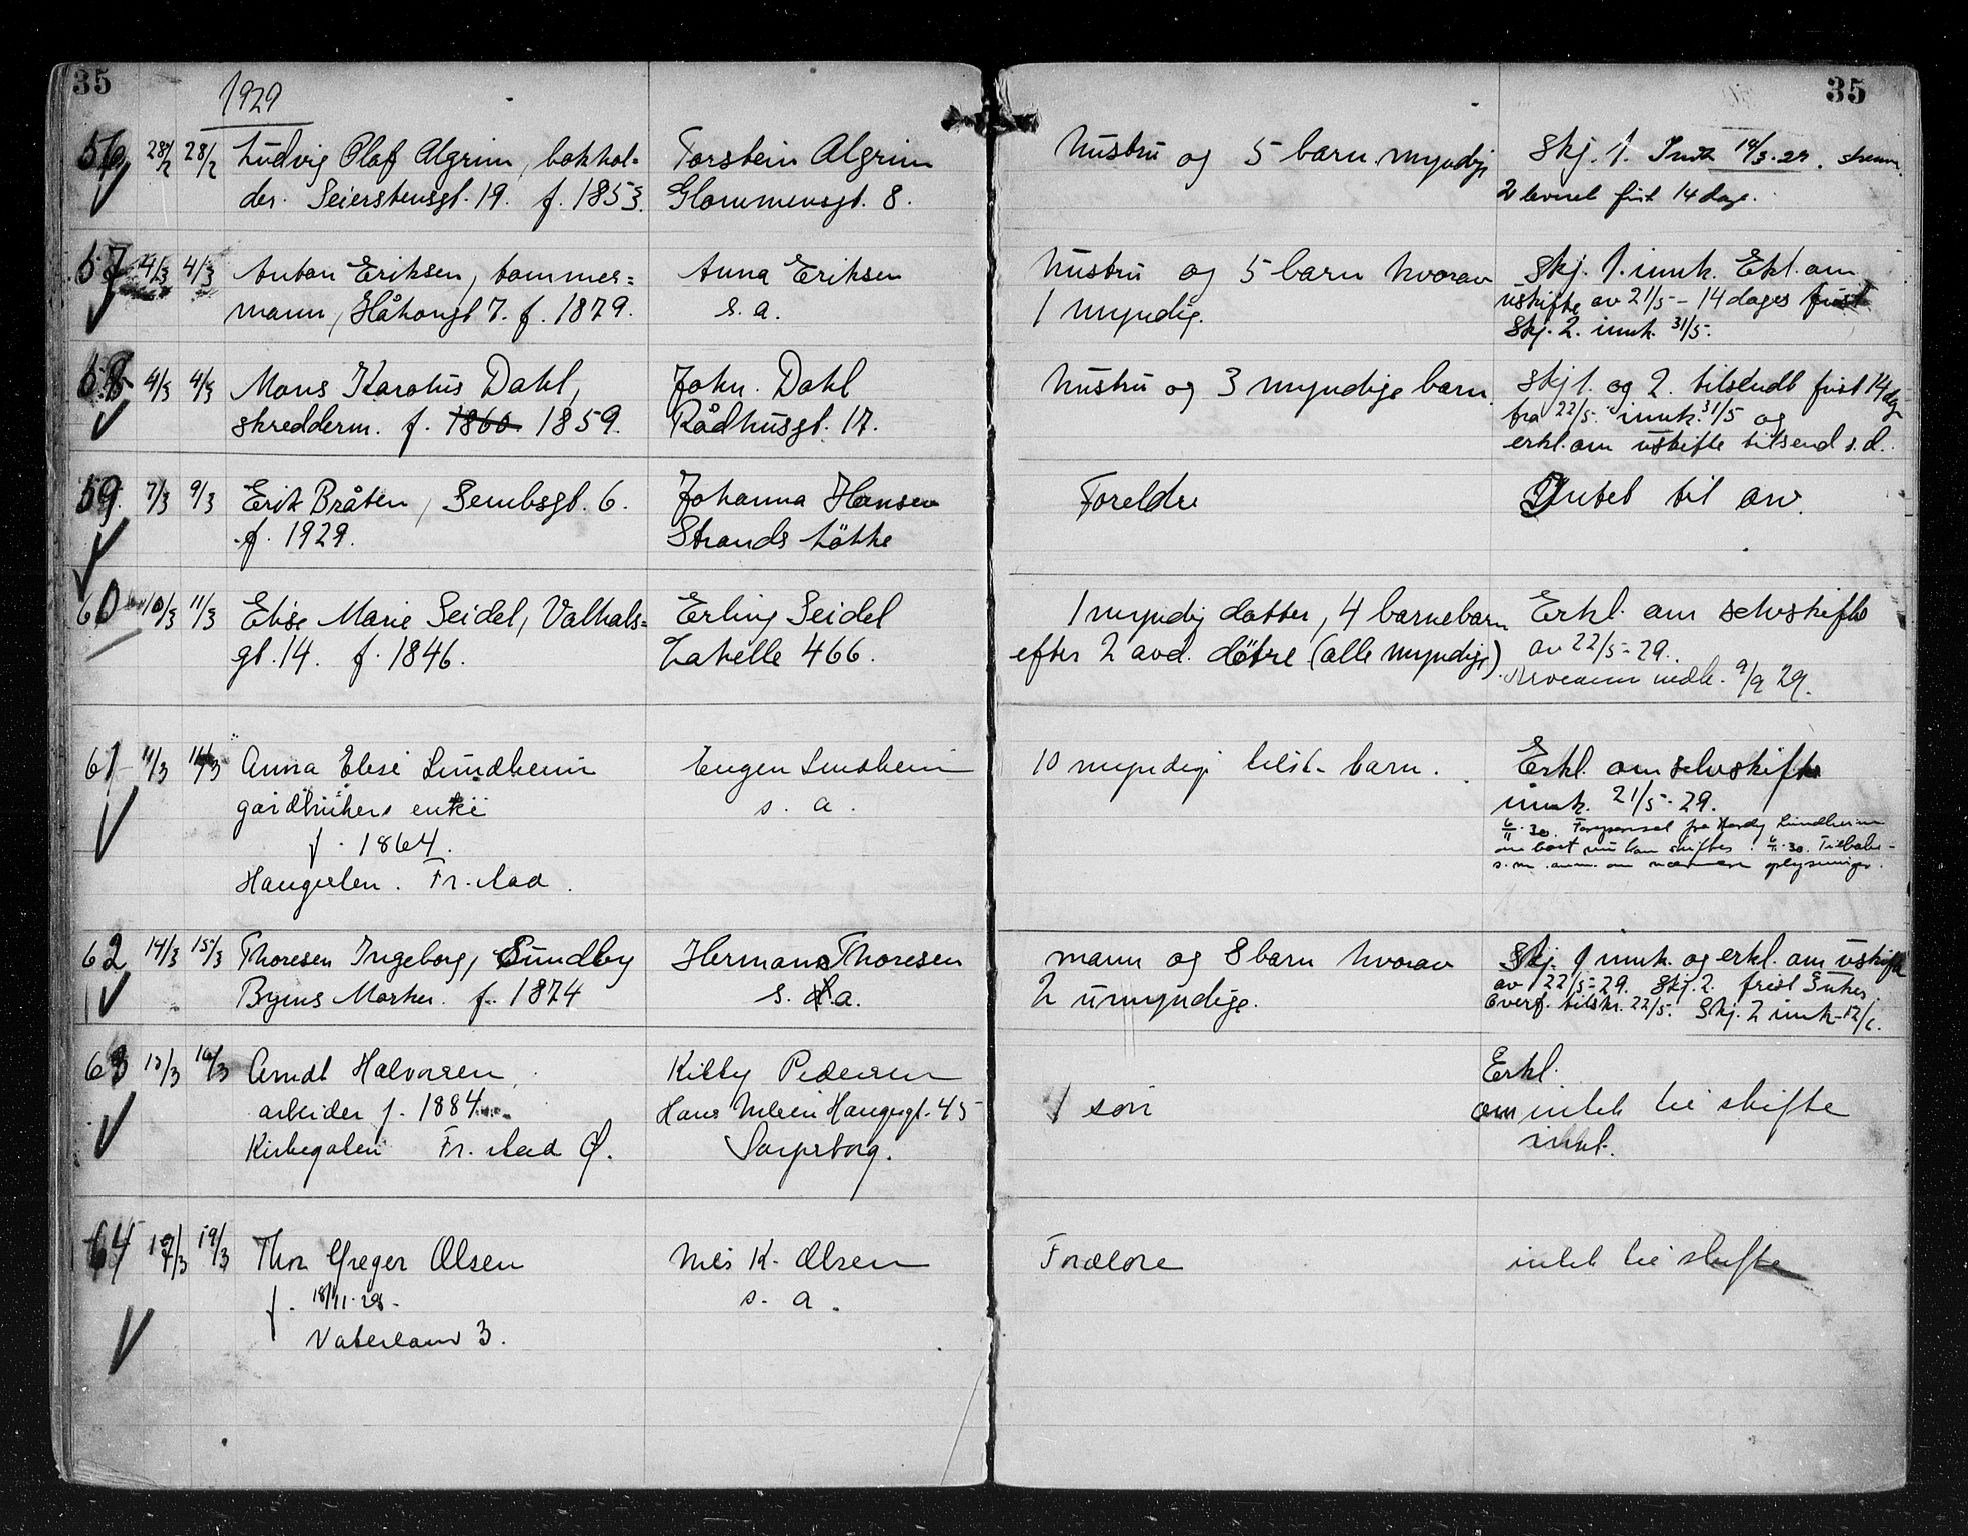 35
35
1929
56 28/2 28/2 Ludvig Olaf Algrim, bokhol= Torstein Algrim Hustru og 5 barn myndig Skj. 1. 14/3-29.
der. Seierstensgt. 19. f. 1853. Glommensgt. 8. 2 levert frist 14 dage.
57 4/3 4/3 Anton Eriksen, tømmer= Anna Eriksen Hustru og 5 barn hvorav Skj. 1. innk. Erkl. om
mann, Håkonsgt 7. f. 1879. s. a. 1 myndig. uskifte av 21/5 - 14 dages frist
Skj. 2. innk. 31/5.
58 4/3 4/3 Mons Karolius Dahl, John. Dahl Hustru og 3 myndige barn. Skj 1. og 2. tilsendt frist 14 dg
skredderm. f. 1860 1859. Rådhusgt. 17. fra 22/5. innk. 31/5 og
erkl. om uskifte tilsend s.d.
59 7/3 9/3 Erik Bråten, Sembsgt. 6. Johanna Hansen Foreldre Intet til arv.
f. 1929. Strands Løkke
60 10/3 11/3 Elise Marie Seidel, Valhals= Erling Seidel 1 myndig datter, 4 barnebarn Erkl. om selvskifte
gt. 14. f. 1846. Labelle 466. efter 2 avd. døtre (alle myndige). av 22/5-29.
9/9 29.
61 11/3 11/3 Anna Elise Lundheim Eugen Lundheim 10 myndige barn. Erkl. om selvskifte
gårdbrukers enke s. a. innk. 21/5-29.
f. 1864. 6/11-30. Forespørsel fra Hardy Lundheim
Haugeelen. Fr.stad.
62 14/3 15/3 Thoresen Ingeborg, Sundby Herman Thoresen mann og 8 barn hvorav Skj. 1 innk. og erkl. om uskifte
Byens Marker. f. 1874 s. a. 2 umyndige. av 22/5-29. Skj. 2. frist 3 uker.
Overf. tilskr. 22/5. Skj. 2 innk. 12/6.
63 13/3 16/3 Arndt Halvorsen, Kitty Pedersen Erkl.
arbeider f. 1884 Hans Nielsen Haugesgt. 45 1 søn om intet til skifte
Kirkegaten Fr.stad Ø. Sarpsborg. innk.
64 17/3 19/3 Thor Greger Olsen Nils K. Olsen Forældre intet til skifte
f. 18/11-28- s. a.
Vaterland 3.